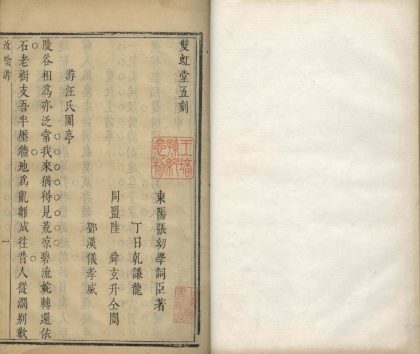 雙虹堂五刻
東陽張幼學詞臣著
丁日乾謙龍
同盟陸舜玄升仝閱
鄧漢儀孝威
游汪氏園亭
陵谷相為亦泛常我來猶得見荒涼碧流婉轉還依
石老樹支吾半壓牆地為亂離成往昔人從凋别歎
一